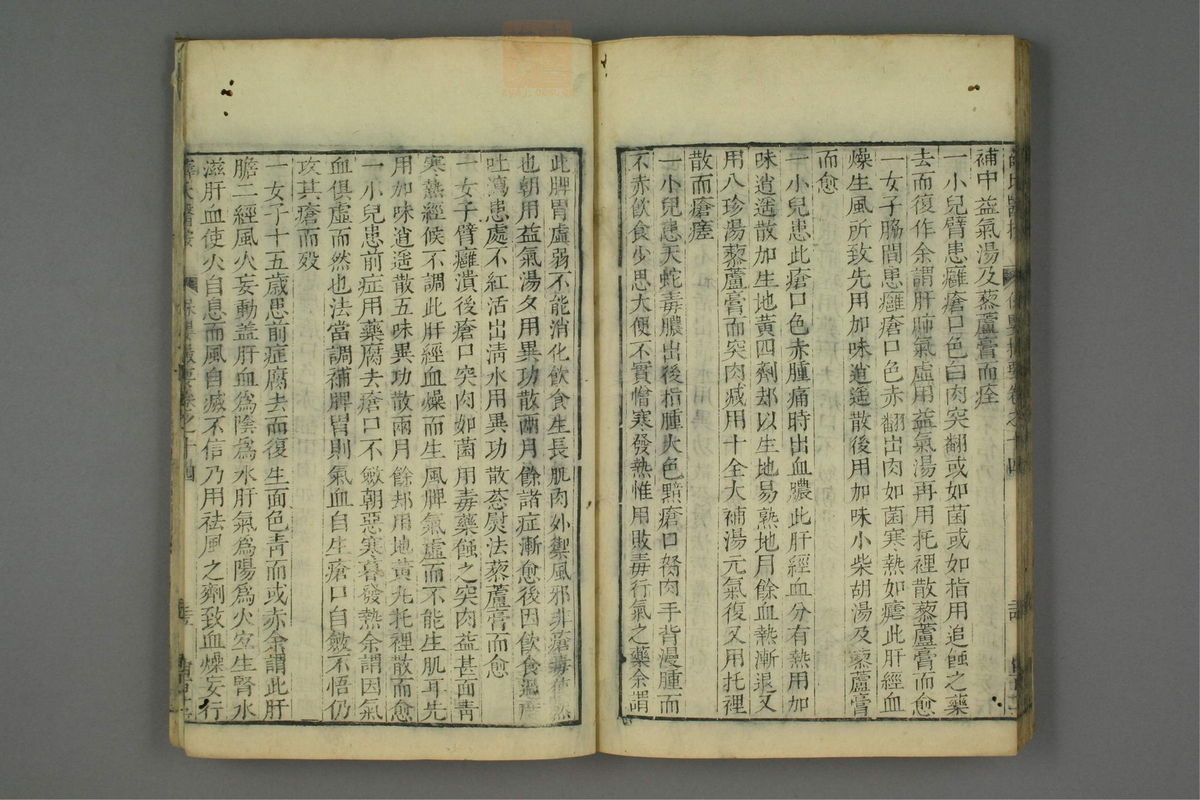 補中益氣湯及蔾蘆膏而痊
一小兒臂患癰瘡口色白肉突翻或如菌或如指用追蝕之藥
去而復作余謂肝肺氣虛用益氣湯再用托裡散蔾蘆膏而愈
一女子脇間患癰瘡口色赤翻出肉如菌寒熱如瘧此肝經血
燥生風所致先用加味逍遙散後用加味小柴胡湯及蔾蘆膏
而愈
一小兒患此瘡口色赤腫痛時出血膿此肝經血分有熱用加
味逍遙散加生地黃四劑却以生地易熟地月餘血熱漸退又
用八珍湯蔾蘆膏而突肉減用十全大補湯元氣復又用托裡
散而瘡瘥
一小兒患天蛇毒膿出後指腫大色黯瘡口努肉手背漫腫而
不赤飲食少思大便不實憎寒發熱惟用敗毒行氣之藥余謂
此脾胃虛弱不能消化飲食生長肌肉外禦風邪非瘡毒使然
也朝用益氣湯夕用異功散兩月餘諸症漸愈後因飲食過度
吐瀉患處不紅活出清水用異功散葱熨法蔾蘆膏而愈
一女子臂癰潰後瘡口突肉如菌用毒藥蝕之突肉益甚面青
寒熱經候不調此肝經血燥而生風脾氣虛而不能生肌耳先
用加味逍遙散五味異功散兩月餘却用地黃丸托裡散而愈
一小兒患前症用藥腐去瘡口不斂朝惡寒暮發熱余謂因氣
血俱虛而然也法當調補脾胃則氣血自生瘡口自斂不悟仍
攻其瘡而歿
一女子十五歲患前症腐去而復生面色青而或赤余謂此肝
膽二經風火妄動蓋肝血為陰為水肝氣為陽為火宜生腎水
滋肝血使火自息而風自滅不信乃用祛風之劑致血燥妄行